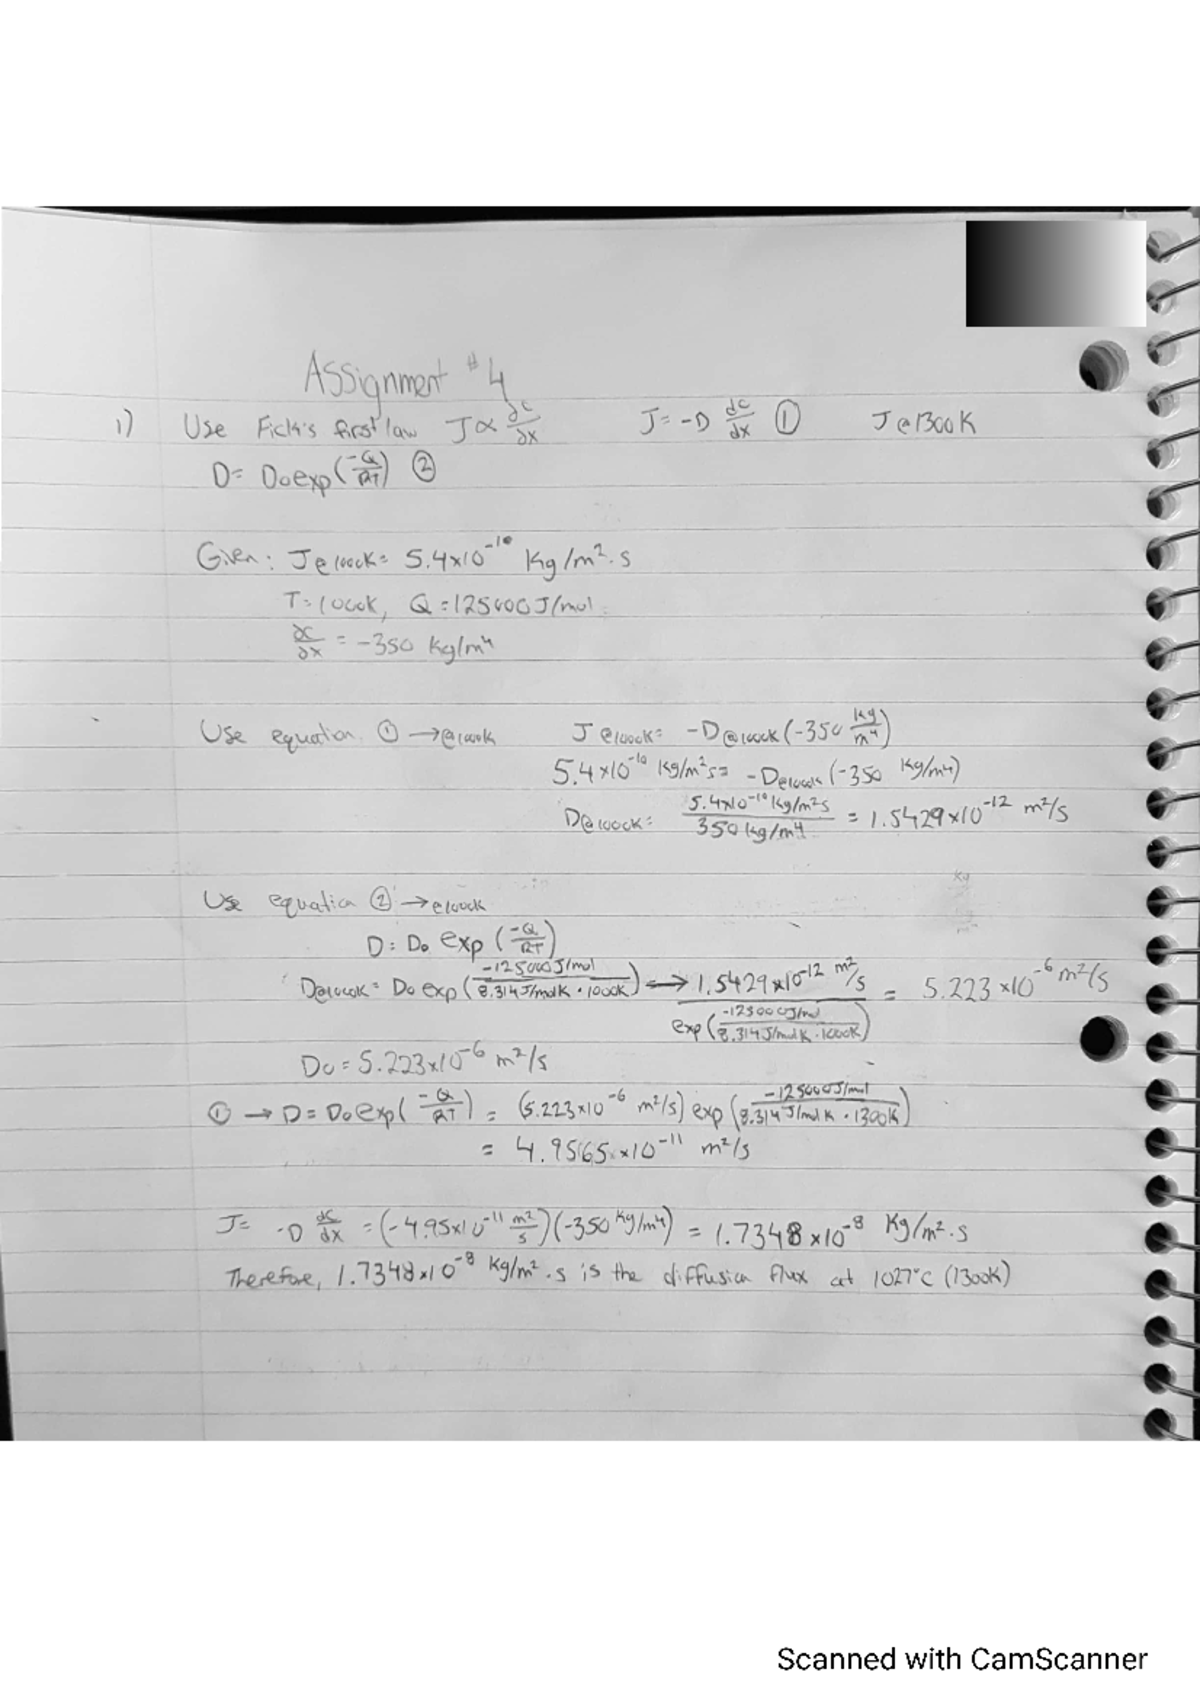 Assignment #4
1) Use Fick's first law J∝ ∂c/∂x J= -D dc/dx ① J@1300K
D= D₀exp(-Q/RT) ②
Given: J@1000K= 5.4x10⁻¹⁰ Kg/m².s
T=1000K, Q=125000J/mol
∂c/∂x = -350 kg/m⁴
Use equation ① →@1000K J@1000K= -D@1000K(-350 kg/m⁴)
5.4x10⁻¹⁰ kg/m²s= -D@1000K(-350 kg/m⁴)
D@1000K= 5.4x10⁻¹⁰kg/m²s / 350kg/m⁴ = 1.5429x10⁻¹² m²/s
Use equation ② →@1000K
D= D₀ exp(-Q/RT)
D@1000K= D₀ exp(-125000J/mol / 8.314J/molK · 1000K) → 1.5429x10⁻¹² m²/s / exp(-125000J/mol / 8.314J/molK · 1000K) = 5.223x10⁻⁶ m²/s
D₀ = 5.223x10⁻⁶ m²/s
① → D= D₀exp(-Q/RT) = (5.223x10⁻⁶ m²/s) exp(-125000J/mol / 8.314J/molK · 1300K)
= 4.9565x10⁻¹¹ m²/s
J= -D dc/dx = (-4.95x10⁻¹¹ m²/s)(-350 kg/m⁴) = 1.7348x10⁻⁸ Kg/m².s
Therefore, 1.7348x10⁻⁸ kg/m².s is the diffusion flux at 1027°C (1300K)
Scanned with CamScanner